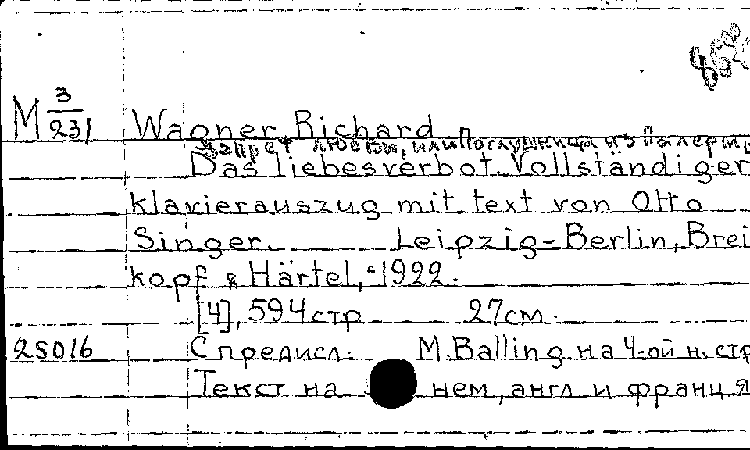 M 3/231 Wagner, Richard
Запрет любви, или Послушница из Палермо
Das liebesverbot. Vollständiger
klavierauszug mit text von Otto
Singer. Leipzig-Berlin, Brei
kopf & Härtel, 1922.
[4], 594 стр 27см.
25016 С предисл. M. Balling на 4-ой н. стр
Текст на нем, англ и франц я